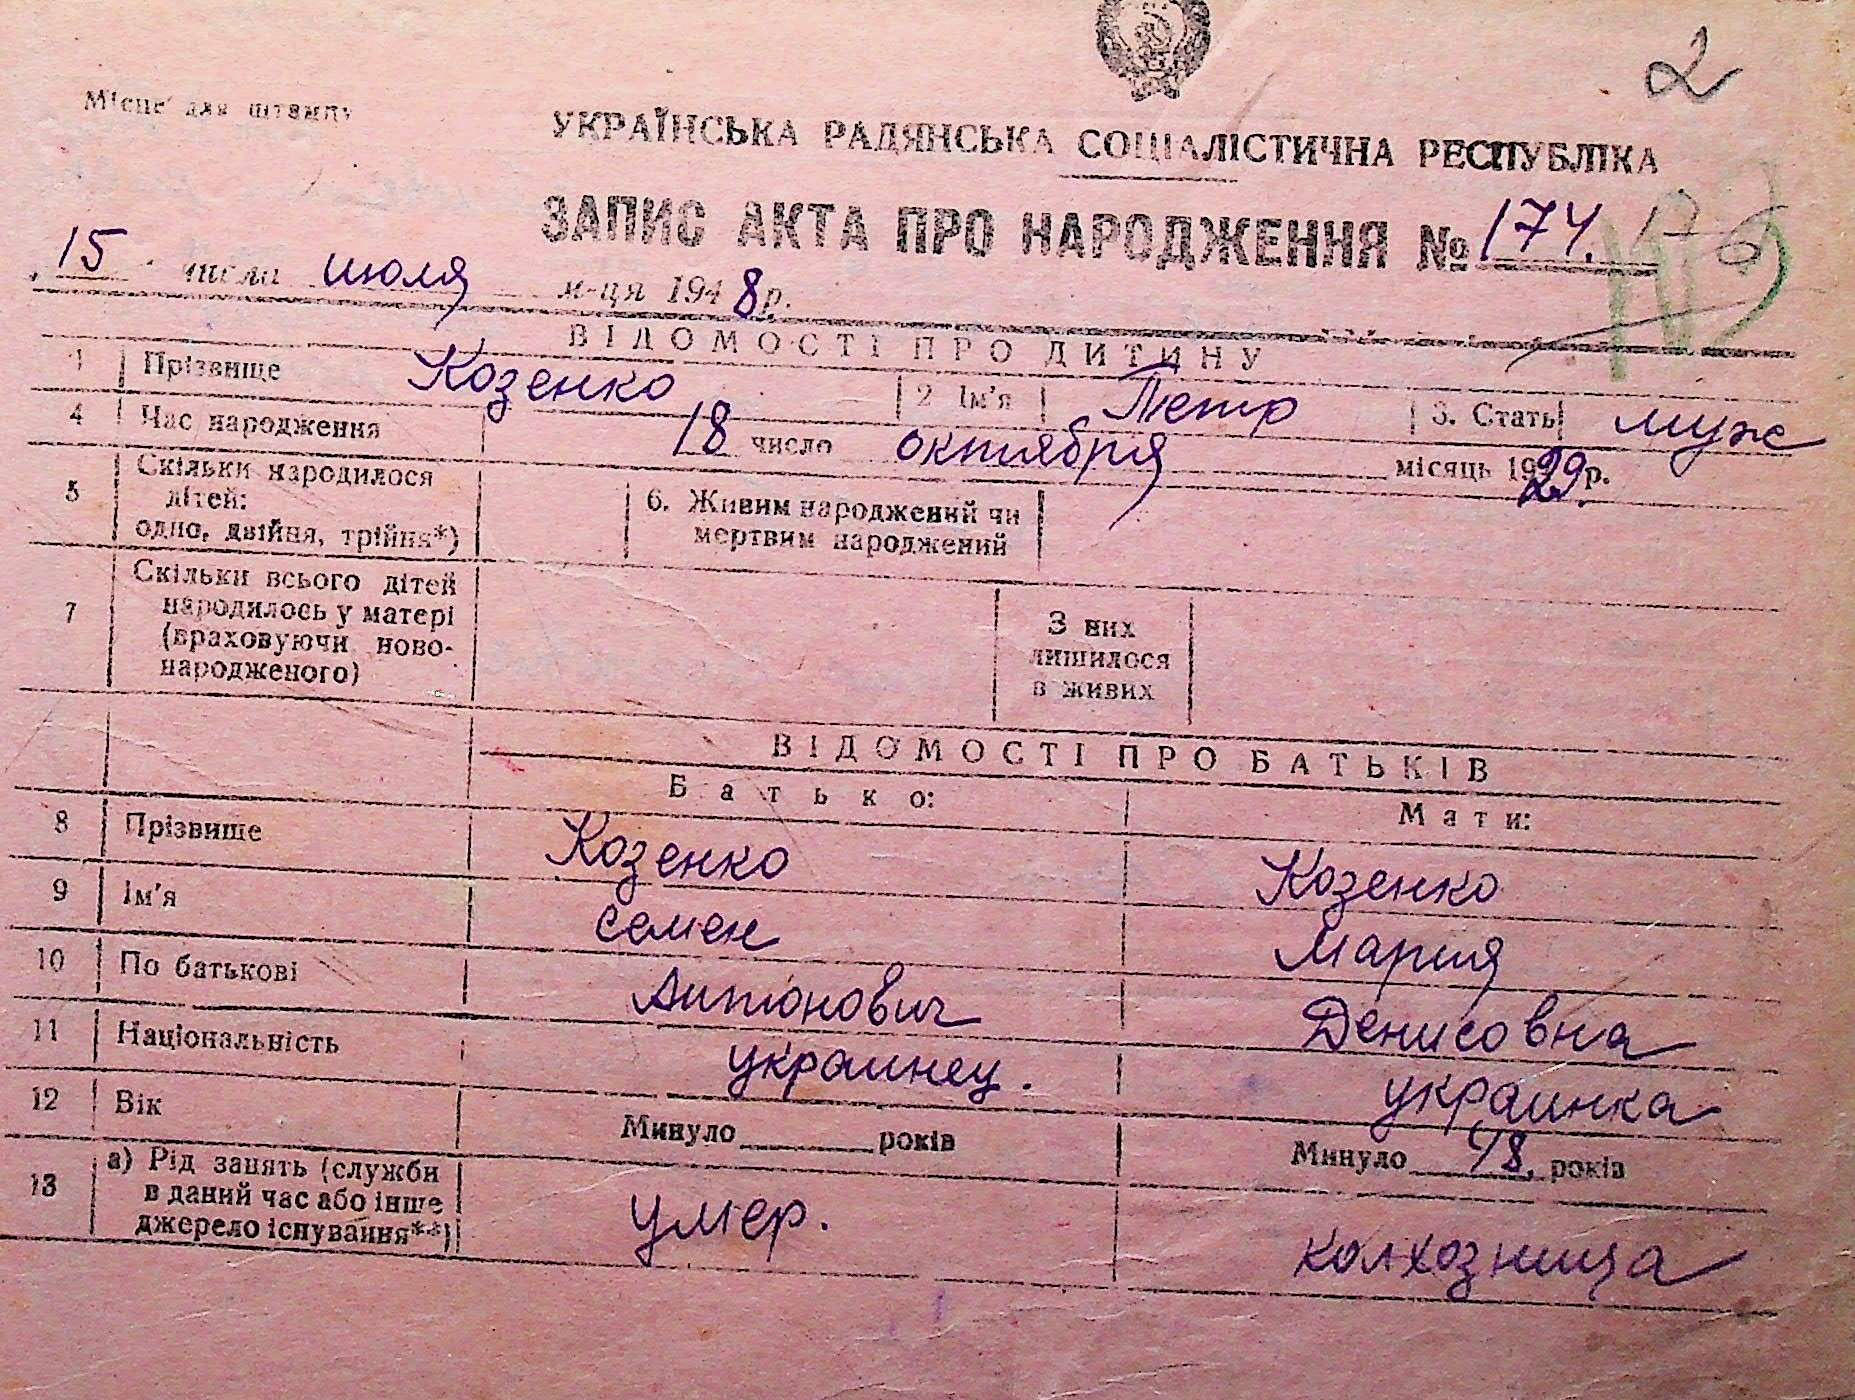 2
Місце для штампу
УКРАЇНСЬКА РАДЯНСЬКА СОЦІАЛІСТИЧНА РЕСПУБЛІКА
ЗАПИС АКТА ПРО НАРОДЖЕННЯ № 174.
15 числа июля м-ця 1948 р.
ВІДОМОСТІ ПРО ДИТИНУ
1 Прізвище Козенко 2 Ім'я Петр 3. Стать муж
4 Час народження 18 число октября місяць 1929 р.
5 Скільки народилося дітей: одно, двійня, трійня*)
6. Живим народжений чи мертвим народжений
7 Скільки всього дітей народилось у матері (враховуючи ново-народженого)
З них лишилося в живих
ВІДОМОСТІ ПРО БАТЬКІВ
Батько: Мати:
8 Прізвище Козенко Козенко
9 Ім'я Семен Мария
10 По батькові Антонович Денисовна
11 Національність украинец. украинка
12 Вік Минуло років Минуло 48. років
13 а) Рід занять (служби в даний час або інше джерело існування**) умер. колхозница